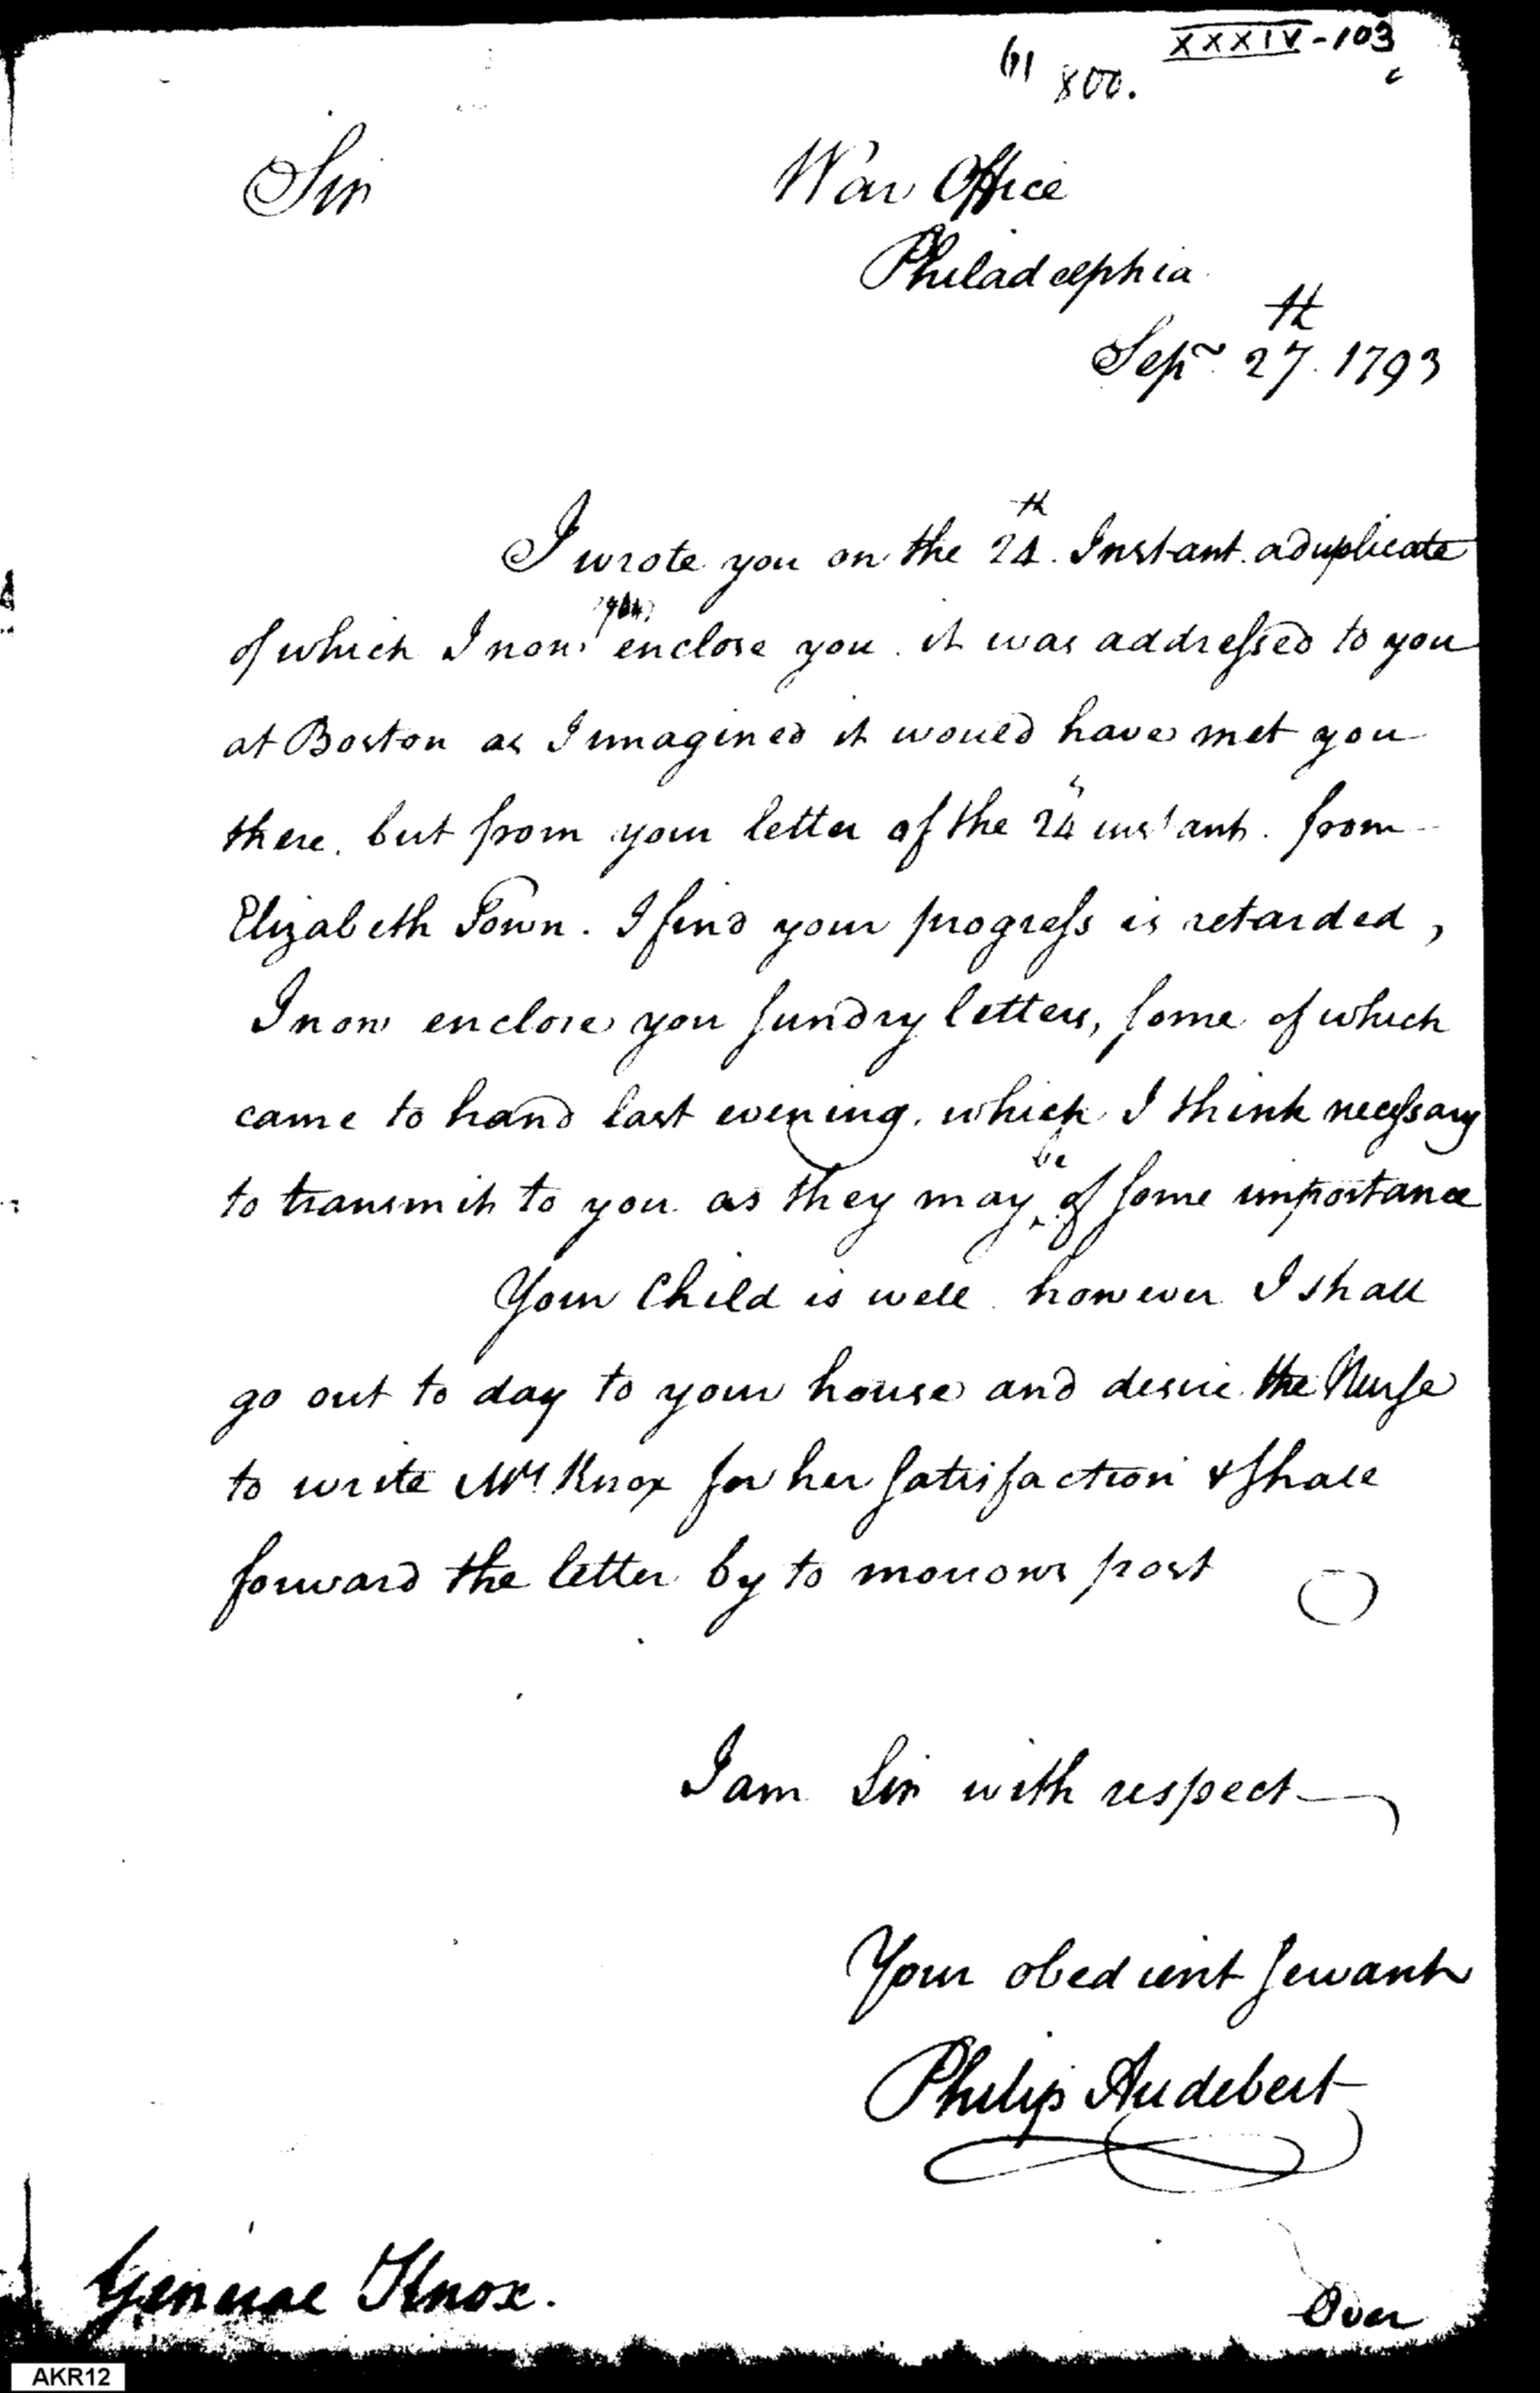 XXXIV-103
800.
Sir War Office
Philadelphia
Sepr. 27th. 1793
I wrote you on the 24th. Instant. a duplicate
of which I now enclose you. it was addressed to you
at Boston as I imagined it would have met you
there. but from your letter of the 24 instant. from
Elizabeth Town. I find your progress is retarded,
I now enclose you sundry letters, some of which
came to hand last evening. which I think necessary
to transmit to you as they may be of some importance
Your Child is well. however I shall
go out to day to your house and desire the Nurse
to write Mrs Knox for her satisfaction & shall
forward the letter by to morrows post
I am Sir with respect
Your obedient servant
Philip Audebert
General Knox.
Over
AKR12